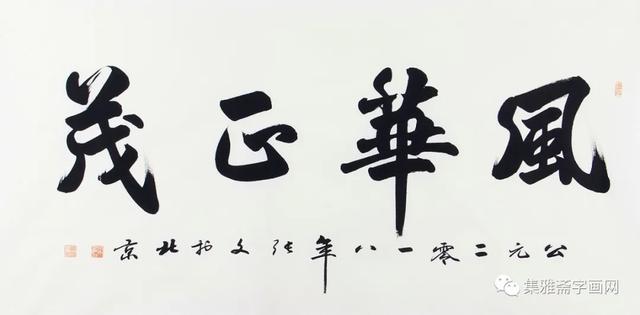 風華正茂
公元二零一八年張文於北京
集雅斋字画网